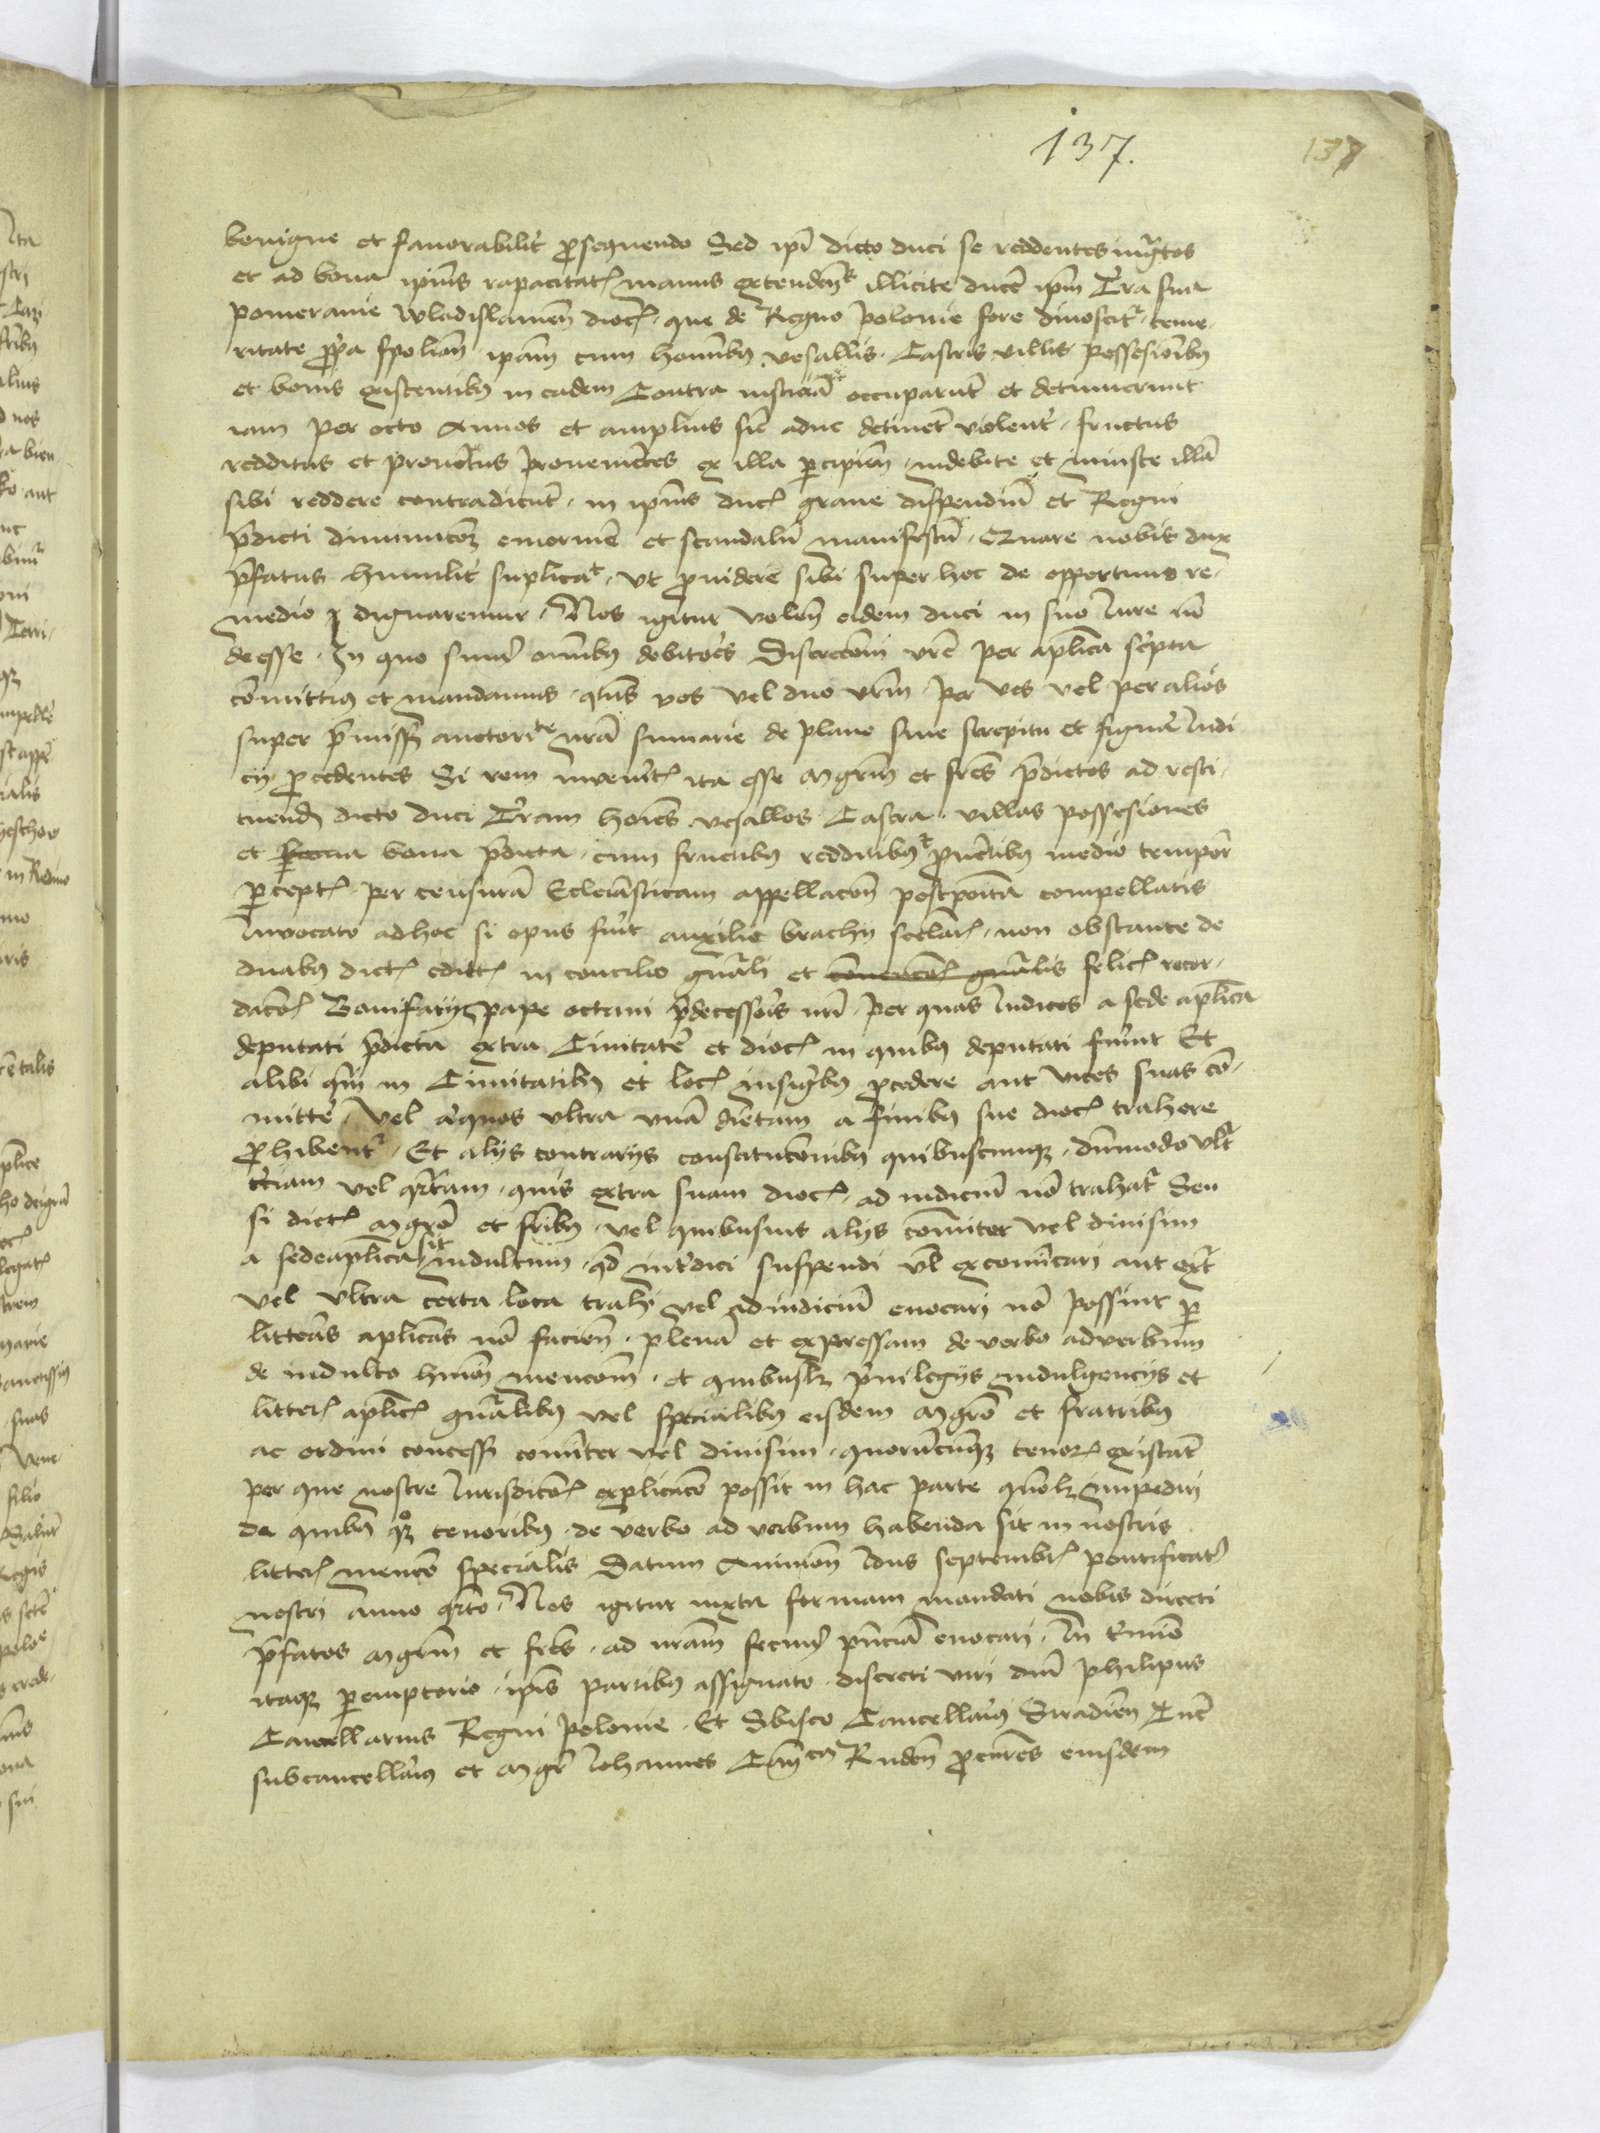 137.
137
benigne et favorabilit' ꝓsequendo Sed ip̄i dicto duci se reddentes ingᵃtos
et ad bona ipius rapacitatꝭ manus extendētes illicite ducē ipm̄ Tra sua
pomeranie Wladislauien̄ diocꝭ que de Regno Polonie fore dinoscitᵘʳ teme-
ritate ꝓpa spolian̄ ipam cum hominibꝫ vasallis Castris villis possessionibꝫ
et bonis existentibꝫ in eadem Contra iusticiā occuparūt et detinuerunt
iam per octo Annos et amplius sic aduc detinēt violent' fructus
redditus et prouetus prouenietes ex illa ꝑcipien̄ indebite et iniuste illā
sibi reddere contradicūt in ipius ducꝭ graue dispendiū et Regni
p̄dicti diminucōem enormē et scandalū manifestū Quare nobis dux
p̄fatus humilit' suplicaᵗ vt ꝓuidere sibi super hoc de opportuno re-
medio dignaremur Nos igitur volen̄ eidem duci in suo Iure nō
deesse In quo sum' omnibꝫ debitores Discrecōni vr̄e per aplica sc'pta
cōmittimꝫ et mandamus qtus vos vel duo vrm̄ per vos vel per alios
super p̄missꝭ auctoriᵗᵉ nrā sumarie de plano sine strepitu et figura Iudi
cij ꝓcedentes Si rem inuenitꝭ ita esse mgrm̄ et fres p̄dictos ad resti-
tuendꝭ dicto duci Tram hoies vasallos Castra villas possessiones
et bona p̄dicta cum fructibꝫ redditibꝫ ᵗ ꝓuentibꝫ medio tempor'
ꝑceptꝭ per censurā Ecclesiasticam appellacōe postpoita compellatis
Invocato ad hoc si opus fuit auxilio brachij seclarꝭ non obstante de
duabꝫ dietꝭ edittꝭ in concilio gnāli et felicꝭ recor-
dacōꝭ Bonifacij pape octaui p̄decessoris nri per quas Iudices a sede aplica
deputati p̄dicta extra Ciuitatē et diocꝭ in quibꝫ deputati fuerint Et
alibi qm̄ in Ciuitatibꝫ et locꝭ insignibꝫ ꝓcedere aut vices suas cō-
mitte' vel aliquos vltra vnā dietam a finibꝫ sue diocꝭ trahere
ꝓhibentᵘʳ Et alijs contrarijs constitucōnibꝫ quibuscunqꝫ dūmodo vltᵃ
t'ciam vel qrtam quis extra suam diocꝭ ad iudiciū nō trahatᵘʳ Seu
si dictꝭ mgrō et fribꝫ vel quibusuis alijs comiter vel diuisim
a sede aplica sit indultum qd intdici suspendi vl excomūcari aut extᵃ
vel vltra certa loca trahi vel ad iudiciū euocari nō possint ꝑ
litteras aplicas nō facien̄ plenā et expressam de verbo adverbum
de indulto hmōi mencōm et quibuslꝫ p̄uilegijs indulgencijs et
litterꝭ aplicꝭ gnālibꝫ vel specialibꝫ eisdem mgrō et fratribꝫ
ac ordini concessꝭ comiter vel diuisim quorūcunqꝫ tenorꝭ existāt
per que nostre Iurisdicōꝭ explicacō possit in hac parte quōlꝫ impediri
de quibꝫ qꝫ tenoribꝫ de verbo ad verbum habenda sit in nostris
litterꝭ mencō specialis Datum Auinion̄ Idus septembrꝭ pontificatꝫ
nostri anno qrto Nos igitur iuxta formam mandati nobis directi
p̄fatos mgrm̄ et fres ad nram fecimꝫ pn̄ciā euocari In t'mino
itaqꝫ ꝑemptorio ipis partibꝫ assignato discreti viri dni philipus
Cancellarius Regni polonie Et Sbisco Cancellariꝫ Siradien̄ tūc
subcancellariꝫ et mgr Iohannes Canᶜᵘˢ Ruden̄ ꝓcures eiusdem